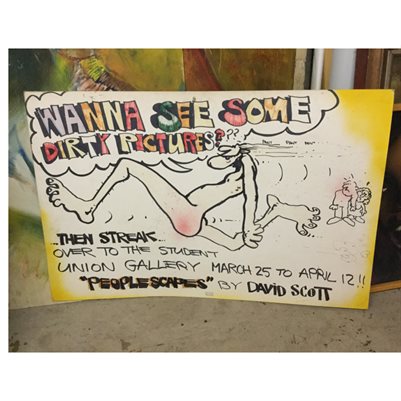 WANNA SEE SOME
DIRTY PICTURES???
PANT PANT PANT
..THEN STREAK...
OVER TO THE STUDENT
UNION GALLERY MARCH 25 TO APRIL 12!!
"PEOPLESCAPES" BY DAVID SCOTT